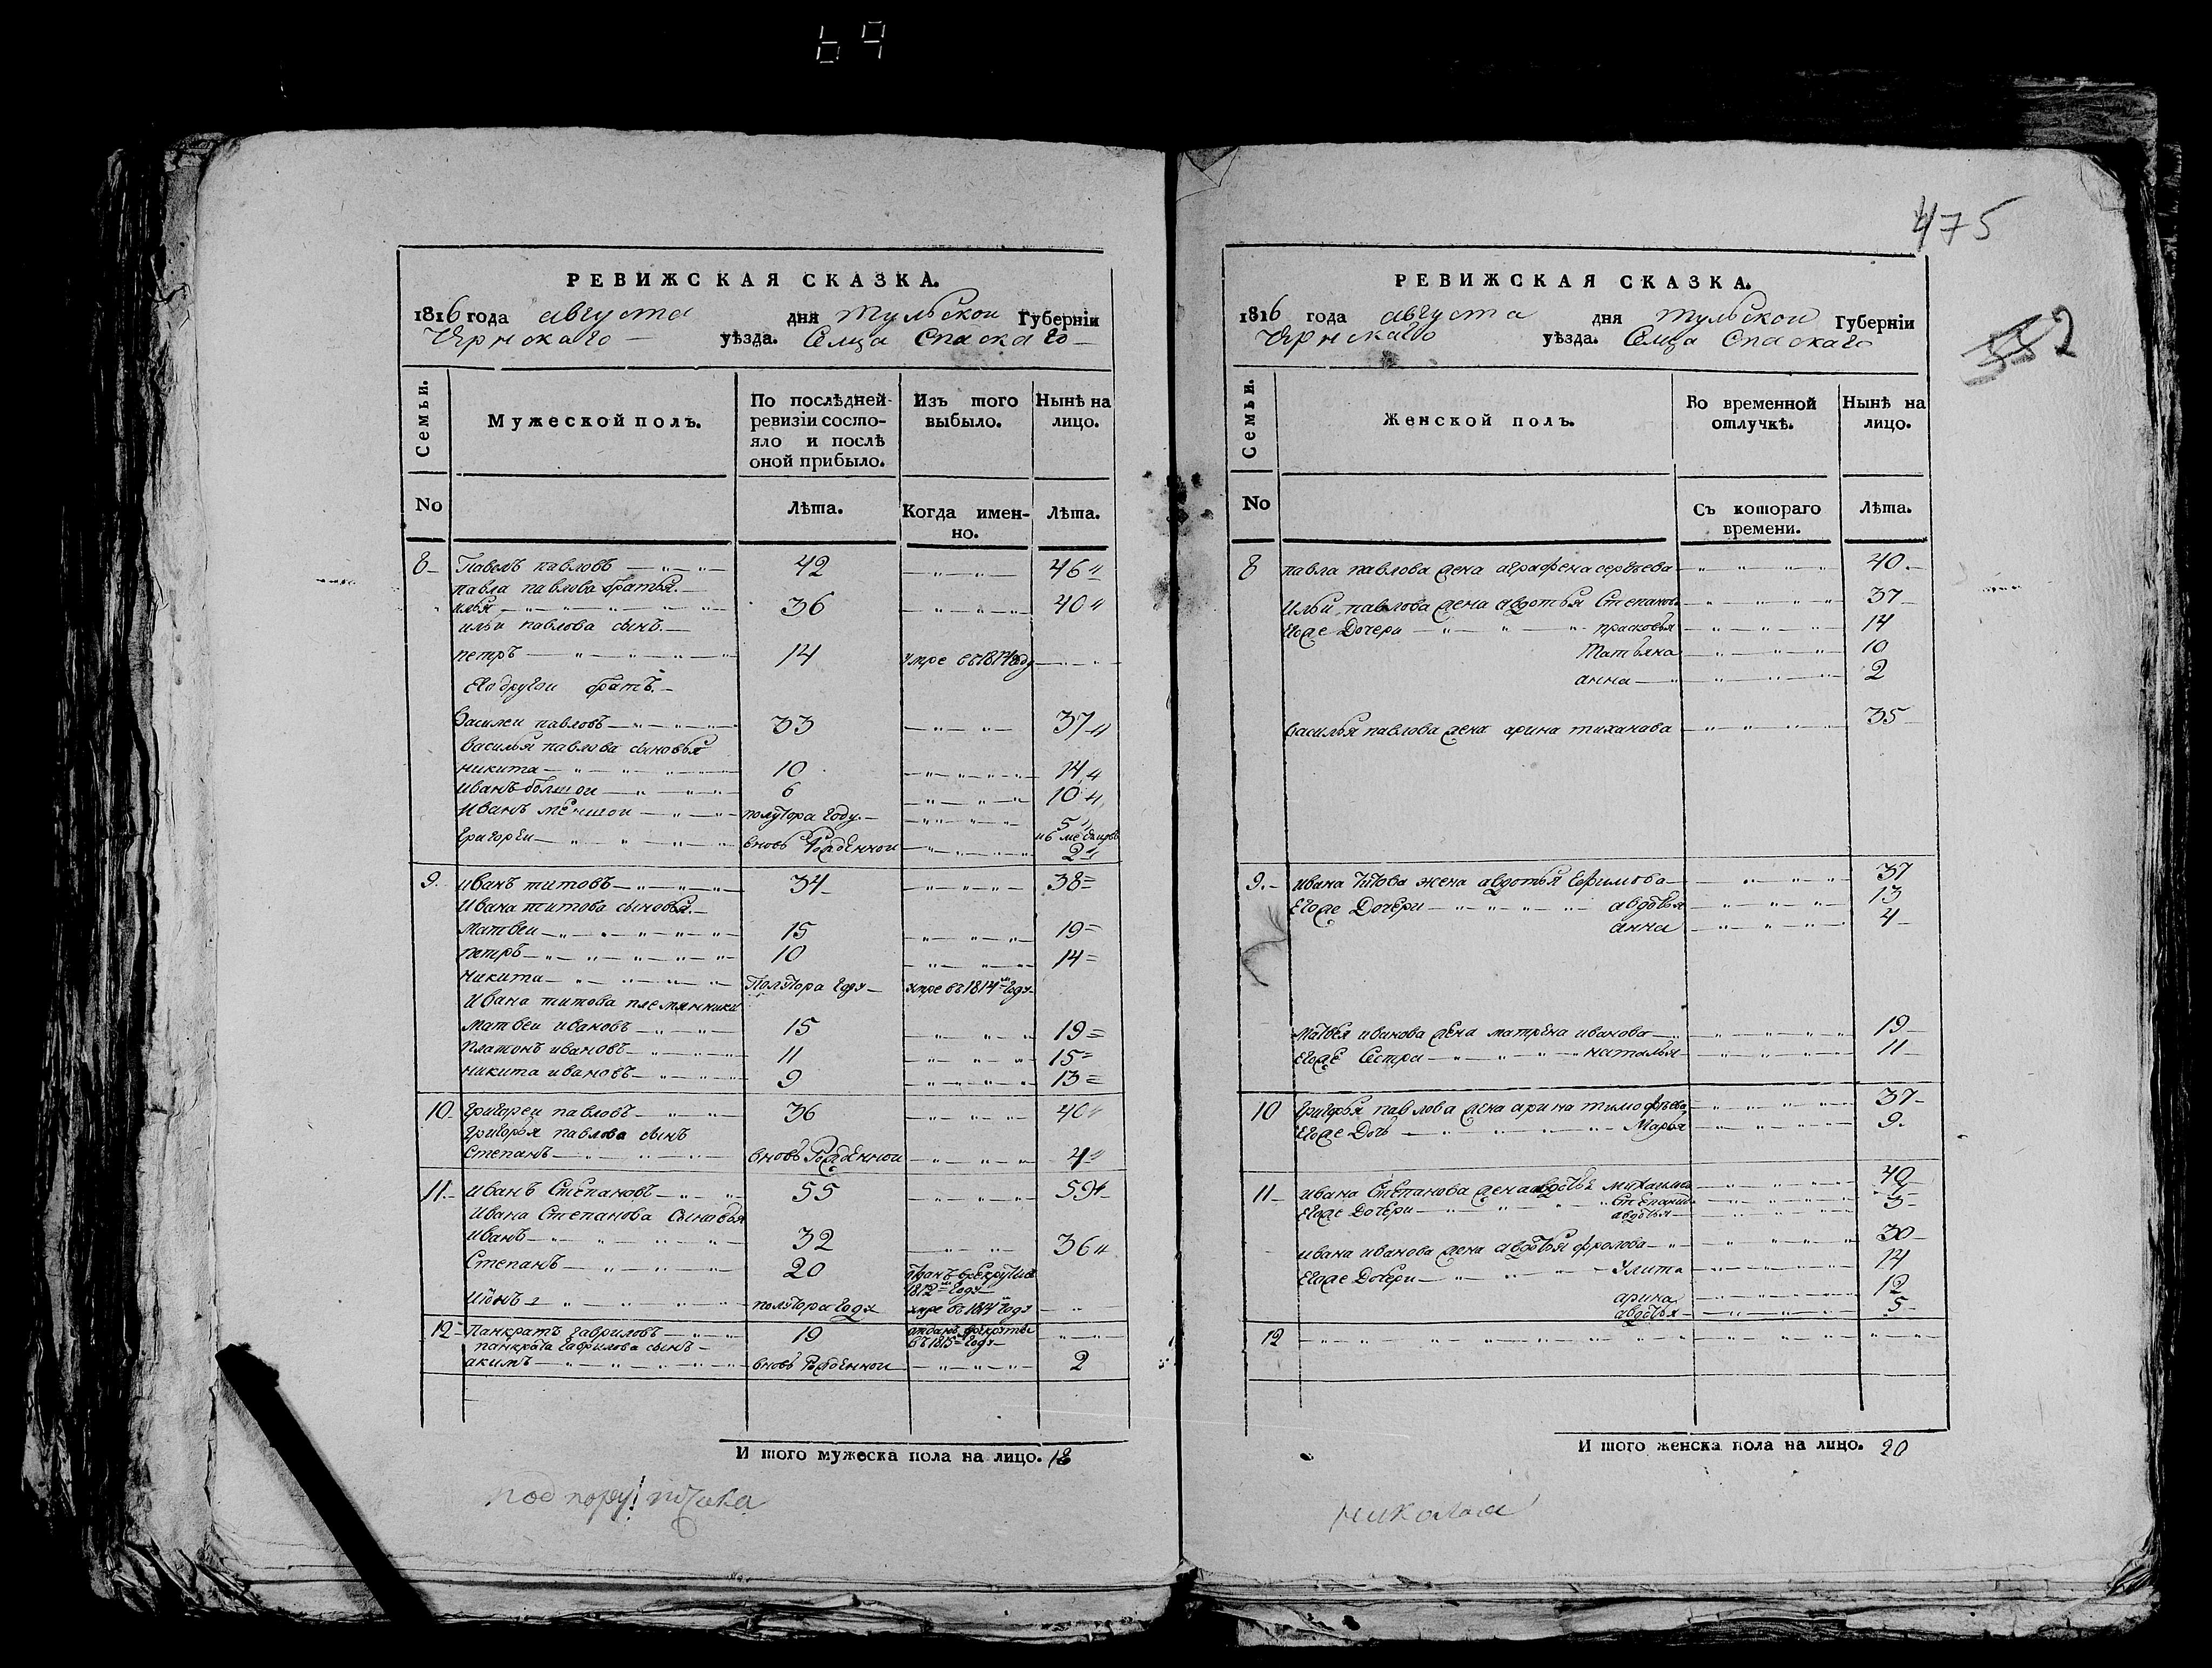 69
475
552
РЕВИЖСКАЯ СКАЗКА.
1816 года августа дня тульскои Губерніи
Чернскаго уѣзда. Селца Спаскаго
Семьи. Мужеской полъ. По послѣдней ревизіи состояло и послѣ оной прибыло. Изъ того выбыло. Нынѣ на лицо.
No Лѣта. Когда именно. Лѣта.
8 Павелъ павловъ 42 46
павла павлова братья.
илья 36 40
ильи павлова сынъ.
петръ 14 умре въ 1814 году
Его другои братъ.
василеи павловъ 33 37
василья павлова сыновья
никита 10 14
иванъ болшои 6 10
иванъ меншои полутора году. 5 и 6 месяцовъ
григореи вновь рожденнои 2
9. иванъ титовъ 34 38
Ивана титова сыновья.
матвеи 15 19
петръ 10 14
никита полутора году умре въ 1814м году
Ивана титова племянники
матвеи ивановъ 15 19
платонъ ивановъ 11 15
никита ивановъ 9 13
10 григореи павловъ 36 40
григорья павлова сынъ
степанъ вновь рожденнои 4
11. иванъ Степановъ 55 59
Ивана Степанова Сыновья
иванъ 32 36
Степанъ 20 1812м году
полутора году умре въ 1814м году
12 Панкратъ гавриловъ 19 отданъ въ 1815м году
панкрата гаврилова сынъ
акимъ вновь рожденнои 2
И того мужеска пола на лицо. 18
РЕВИЖСКАЯ СКАЗКА.
1816 года августа дня тульскои Губерніи
Чернскаго уѣзда. Селца Спаскаго
Семьи. Женской полъ. Во временной отлучкѣ. Нынѣ на лицо.
No Съ котораго времени. Лѣта.
8 павла павлова жена аграфена сергѣева 40
Ильи павлова жена авдотья Степанова 37
Егоже Дочери прасковья 14
Татьяна 10
анна 2
василья павлова жена арина тиханава 35
9. ивана титова жена авдотья Ефимова 37
Егоже Дочери авдотья 13
анна 4
матвея иванова жена матрена иванова 19
Егоже Сестра наталья 11
10 григорья павлова жена арина тимофѣева 37
Егоже Дочь Марья 9
11 ивана Степанова жена авдотья михаилова 40
Егоже Дочери 7
авдотья 3
ивана иванова жена авдотья фролова 30
Егоже Дочери Улита 14
арина 12
авдотья 5
12
И того женска пола на лицо. 20
николая